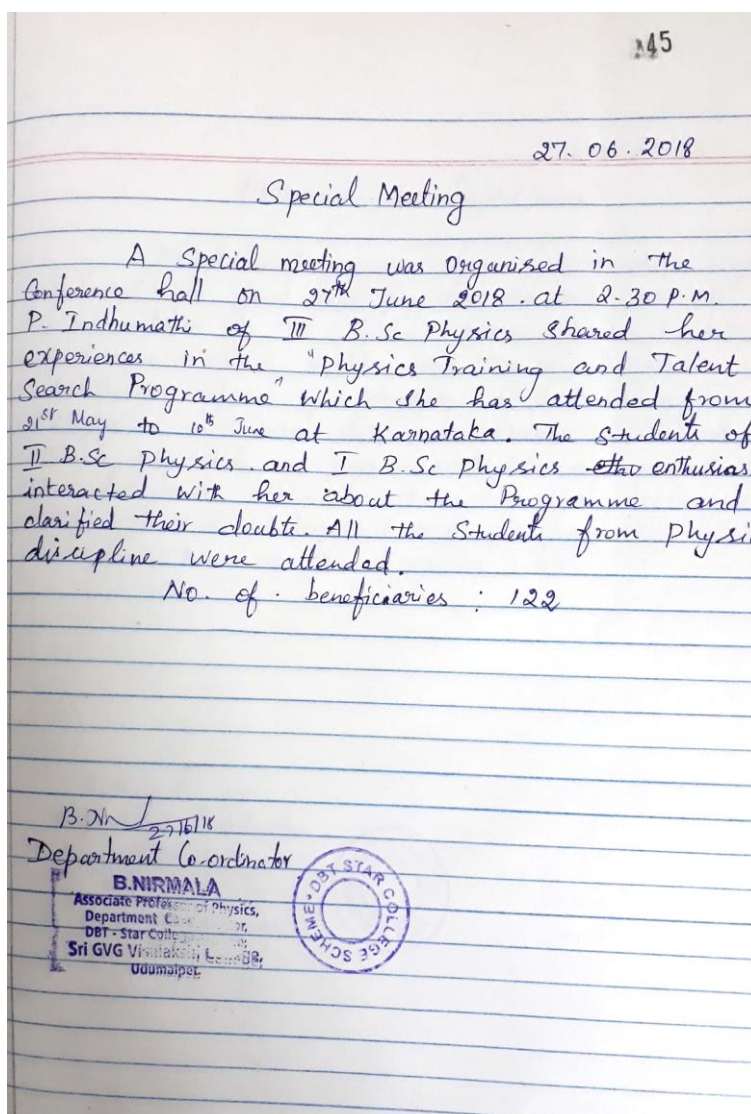 145
27. 06. 2018
Special Meeting
A Special meeting was Organised in the
Conference hall on 27th June 2018. at 2.30 P.M.
P. Indhumathi of III B.Sc Physics Shared her
experiences in the "Physics Training and Talent
Search Programme" which She has attended from
21st May to 10th June at Karnataka. The Students of
II B.Sc Physics. and I B.Sc Physics enthusias
interacted with her about the Programme and
clarified their doubts. All the Students from physi
discipline were attended.
No. of. beneficiaries : 122
27/6/18
Department Co-ordinator
B.NIRMALA
Associate Professor of Physics,
Department
DBT - Star
Sri GVG
Udumalpet.
DBT STAR COLLEGE SCHEME